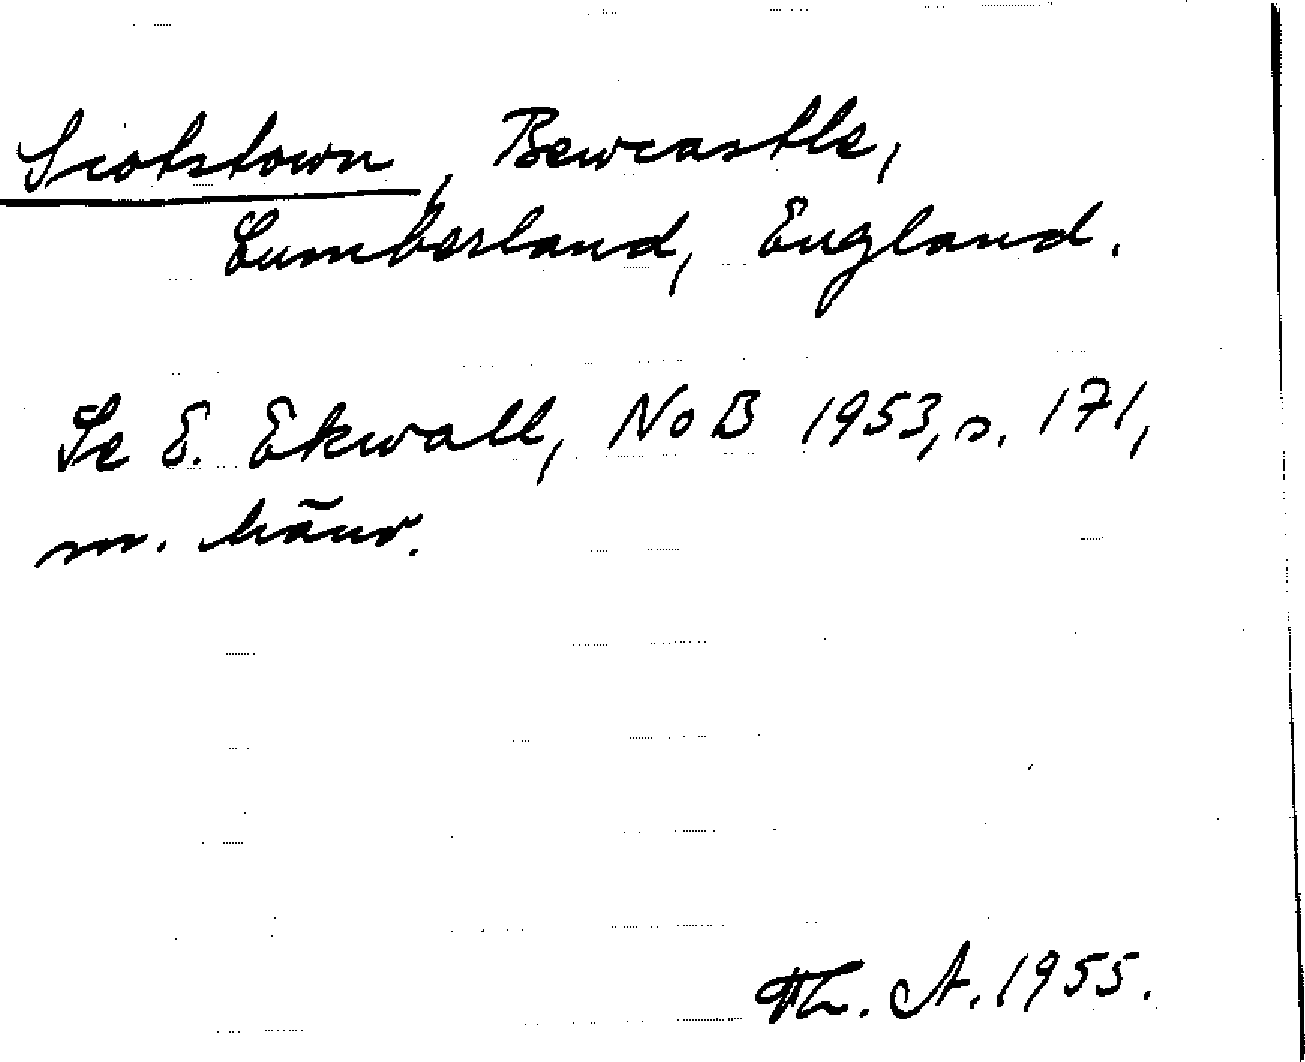 Scotstown, Bewcastle,
Cumberland, England.
Se E. Ekwall, NoB 1953, s. 171,
m. hänv.
Th. A. 1955.